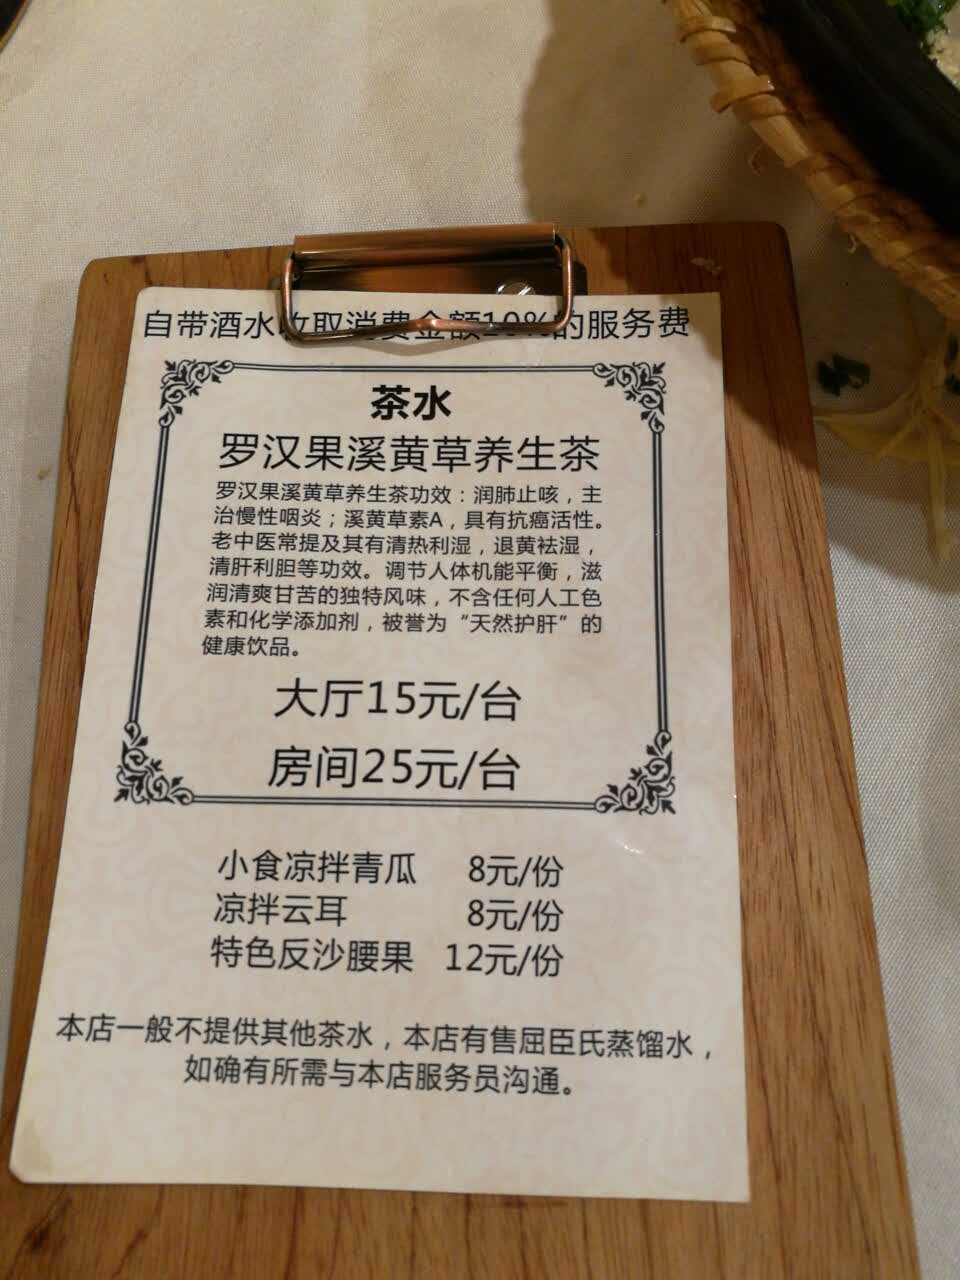 自带酒水收取消费金额10%的服务费
茶水
罗汉果溪黄草养生茶
罗汉果溪黄草养生茶功效：润肺止咳，主
治慢性咽炎；溪黄草素A，具有抗癌活性。
老中医常提及其有清热利湿，退黄祛湿，
清肝利胆等功效。调节人体机能平衡，滋
润清爽甘苦的独特风味，不含任何人工色
素和化学添加剂，被誉为“天然护肝”的
健康饮品。
大厅15元/台
房间25元/台
小食凉拌青瓜 8元/份
凉拌云耳 8元/份
特色反沙腰果 12元/份
本店一般不提供其他茶水，本店有售屈臣氏蒸馏水，
如确有所需与本店服务员沟通。